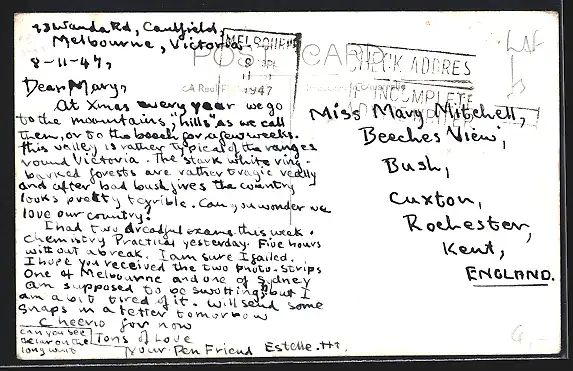 Wanda Rd, Caulfield,
Melbourne, Victoria.
8-11-47,
Dear Mary,
At Xmas every year we go
to the mountains, "hills" as we call
them, or to the beach for a few weeks.
This valley is rather typical of the ranges
round Victoria. The stark white ring-
barked forests are rather tragic really
and after bad bush fires the country
looks pretty terrible. Can you wonder we
love our country!
I had two dreadful exams this week.
Chemistry Practical yesterday. Five hours
without a break. I am sure I failed.
I hope you received the two photo-strips
One of Melbourne and one of Sydney
am supposed to be swotting but I
am a bit tired of it. Will send some
snaps in a letter tomorrow
Cheerio for now
Tons of Love
Your Pen Friend Estelle.
can you see
the
long
POST CARD
MELBOURNE
1947
CHECK ADDRES
INCOMPLETE
Miss Mary Mitchell,
Beeches View,
Bush,
Cuxton,
Rochester,
Kent,
ENGLAND.